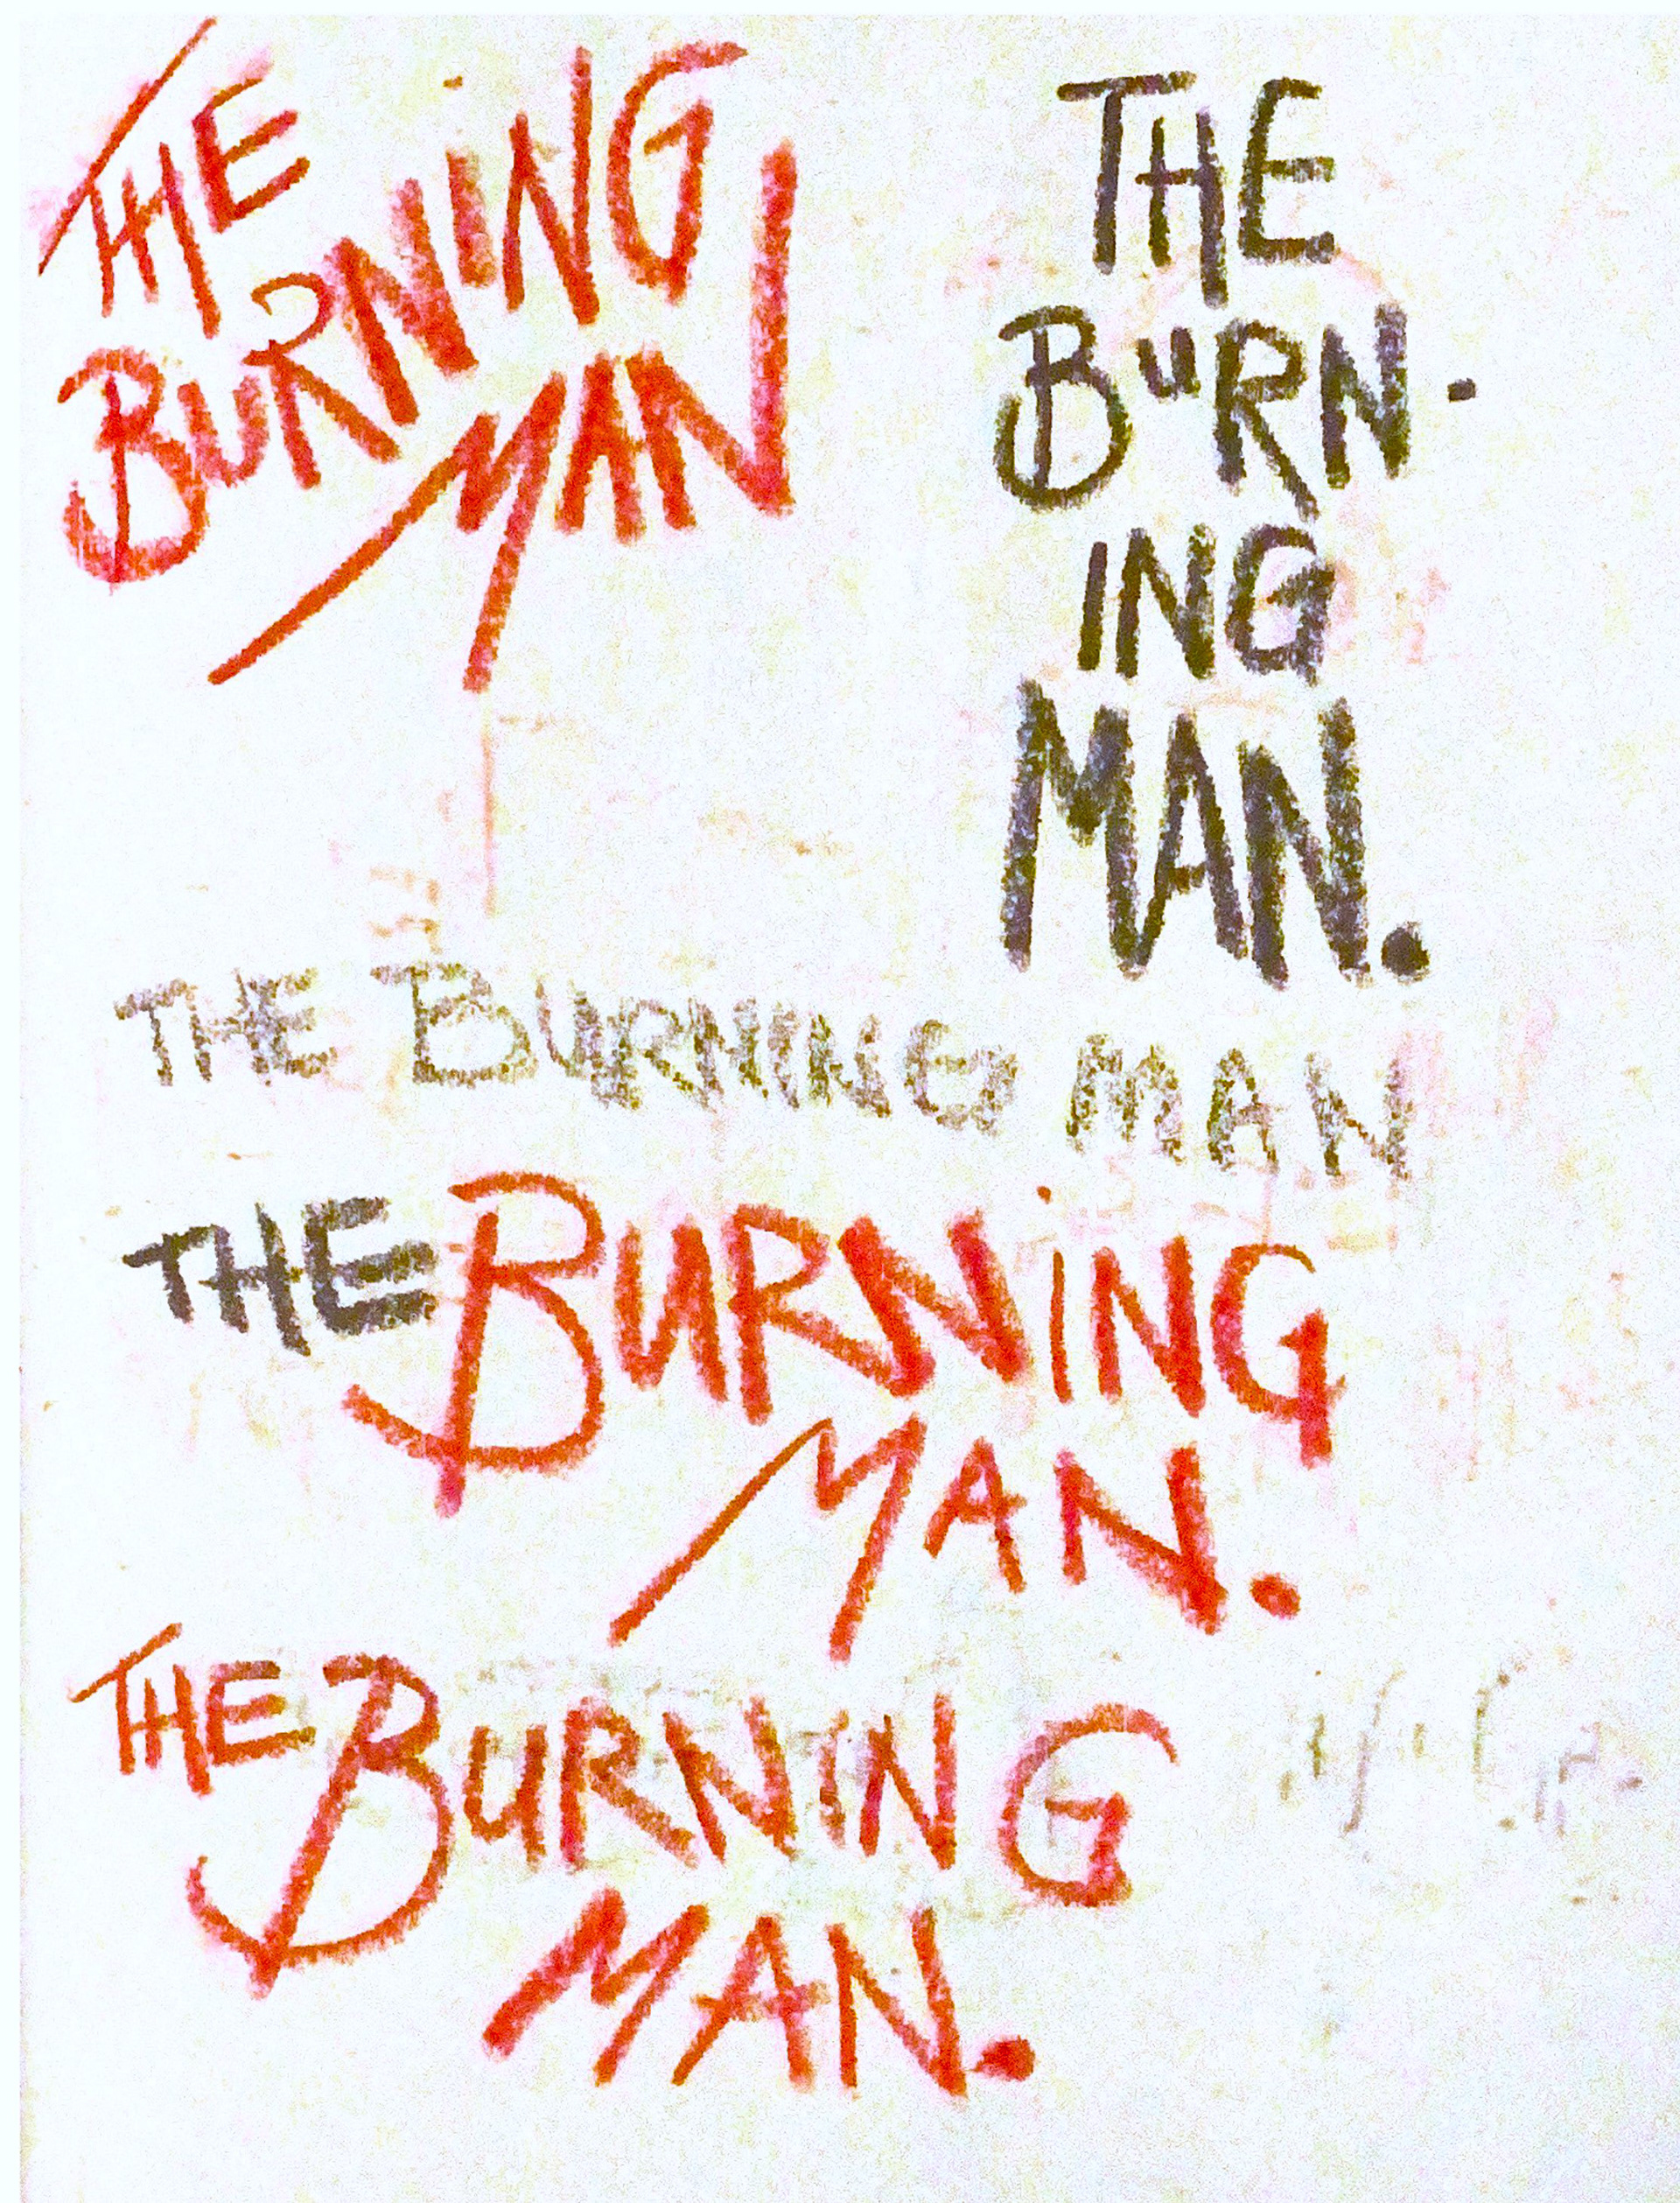 THE
BURNiNG
MAN
THE
BuRN-
ING
MAN.
THE BURNING MAN
THE BURNiNG
MAN.
THE BURNING
MAN.